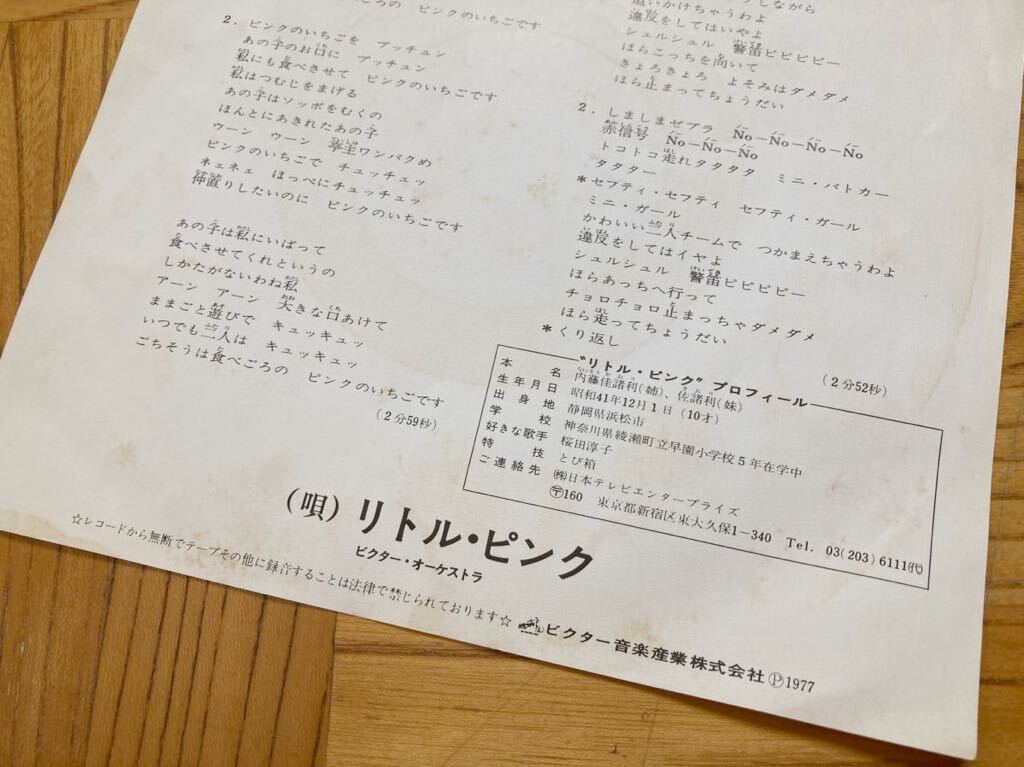 ごろの ピンクのいちごです
2. ピンクのいちごを プッチュン
あの子のお口に プッチュン
私にも食べさせて ピンクのいちごです
私はつむじをまげる
あの子はソッポをむくの
ほんとにあきれたあの子
ウーン ウーン ワンパクめ
ピンクのいちごで チュッチュッ
ネェネェ ほっぺにチュッチュッ
仲直りしたいのに ピンクのいちごです
あの子は私にいばって
食べさせてくれというの
しかたがないわね私
アーン アーン 大きな口あけて
ままごと遊びで キュッキュッ
いつでも二人は キュッキュッ
ごちそうは食べごろの ピンクのいちごです
(2分59秒)
しながら
追いかけちゃうわよ
違反をしてはいやよ
シュルシュル 警笛ピピピピー
ほらこっちを向いて
きょろきょろ よそみはダメダメ
ほら止まってちょうだい
2. しましまゼブラ No—No—No—No
赤信号 No—No—No
トコトコ走れタタタタ ミニ・パトカー
タタター
*セフティ・セフティ セフティ・ガール
ミニ・ガール
かわいい二人チームで つかまえちゃうわよ
違反をしてはイヤよ
シュルシュル 警笛ピピピピー
ほらあっちへ行って
チョロチョロ止まっちゃダメダメ
ほら走ってちょうだい
*くり返し
(2分52秒)
“リトル・ピンク” プロフィール
本名 内藤佳諸利(姉)、佐諸利(妹)
生年月日 昭和41年12月1日(10才)
出身地 静岡県浜松市
学校 神奈川県綾瀬町立早園小学校5年在学中
好きな歌手 桜田淳子
特技 とび箱
ご連絡先 ㈱日本テレビエンタープライズ
〒160 東京都新宿区東大久保1-340 Tel. 03(203)6111(代)
(唄) リトル・ピンク
ビクター・オーケストラ
☆レコードから無断でテープその他に録音することは法律で禁じられております☆
ビクター音楽産業株式会社 Ⓟ1977